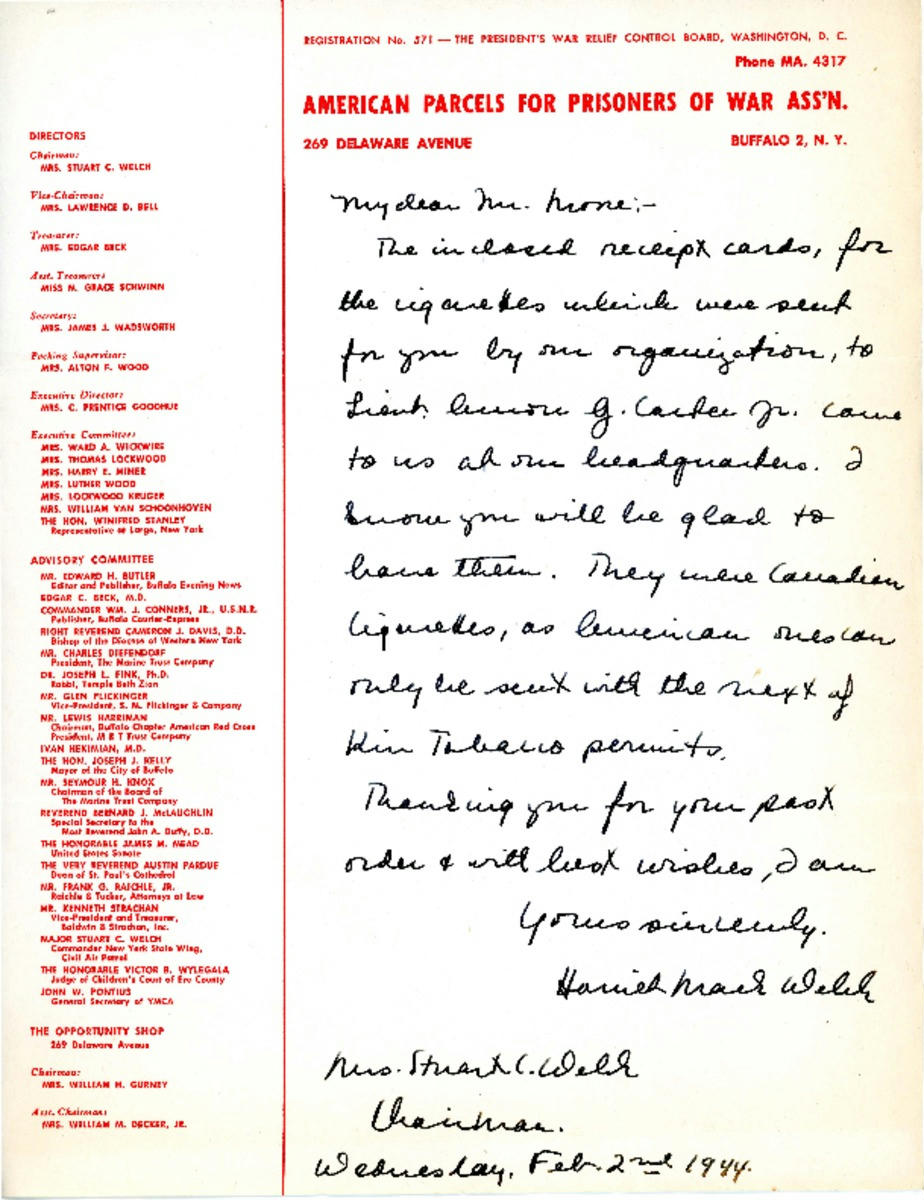 REGISTRATION No. 571 — THE PRESIDENT'S WAR RELIEF CONTROL BOARD, WASHINGTON, D. C.
Phone MA. 4317
AMERICAN PARCELS FOR PRISONERS OF WAR ASS'N.
269 DELAWARE AVENUE
BUFFALO 2, N. Y.
DIRECTORS
Chairman:
MRS. STUART C. WELCH
Vice-Chairman:
MRS. LAWRENCE D. BELL
Treasurer:
MRS. EDGAR BECK
Asst. Treasurer:
MISS M. GRACE SCHWINN
Secretary:
MRS. JAMES J. WADSWORTH
Packing Supervisor:
MRS. ALTON F. WOOD
Executive Director:
MRS. C. PRENTICE GOODHUE
Executive Committee:
MRS. WARD A. WICKWIRE
MRS. THOMAS LOCKWOOD
MRS. HARRY E. MINER
MRS. LUTHER WOOD
MRS. LOCKWOOD KRUGER
MRS. WILLIAM VAN SCHOONHOVEN
THE HON. WINIFRED STANLEY
Representative at Large, New York
ADVISORY COMMITTEE
MR. EDWARD H. BUTLER
Editor and Publisher, Buffalo Evening News
EDGAR C. BECK, M.D.
COMMANDER WM. J. CONNERS, JR., U.S.N.R.
Publisher, Buffalo Courier-Express
RIGHT REVEREND CAMERON J. DAVIS, D.D.
Bishop of the Diocese of Western New York
MR. CHARLES DIEFENDORF
President, The Marine Trust Company
DR. JOSEPH L. FINK, Ph.D.
Rabbi, Temple Beth Zion
MR. GLEN FLICKINGER
Vice-President, S. M. Flickinger & Company
MR. LEWIS HARRIMAN
Chairman, Buffalo Chapter American Red Cross
President, M & T Trust Company
IVAN HEKIMIAN, M.D.
THE HON. JOSEPH J. KELLY
Mayor of the City of Buffalo
MR. SEYMOUR H. KNOX
Chairman of the Board of
The Marine Trust Company
REVEREND BERNARD J. McLAUGHLIN
Special Secretary to the
Most Reverend John A. Duffy, D.D.
THE HONORABLE JAMES M. MEAD
United States Senate
THE VERY REVEREND AUSTIN PARDUE
Dean of St. Paul's Cathedral
MR. FRANK G. RAICHLE, JR.
Raichle & Tucker, Attorneys at Law
MR. KENNETH STRACHAN
Vice-President and Treasurer,
Baldwin & Strachan, Inc.
MAJOR STUART C. WELCH
Commander New York State Wing,
Civil Air Patrol
THE HONORABLE VICTOR B. WYLEGALA
Judge of Children's Court of Erie County
JOHN W. PONTIUS
General Secretary of YMCA
THE OPPORTUNITY SHOP
269 Delaware Avenue
Chairman:
MRS. WILLIAM H. GURNEY
Asst. Chairman:
MRS. WILLIAM M. DECKER, JR.
My dear Mr.
The inclosed receipt cards, for
the cigarettes which were sent
for you by our organization, to
Lieut. Amon G. Carter Jr. came
to us at our headquarters. I
know you will be glad to
have them. They were Canadian
Cigarettes, as American ones can
only be sent with the next of
Kin Tobacco permits.
Thanking you for your past
order & with best wishes, I am
Yours sincerely.
Harriet Mack Welch
Mrs. Stuart C. Welch
Chairman.
Wednesday, Feb. 2nd 1944.